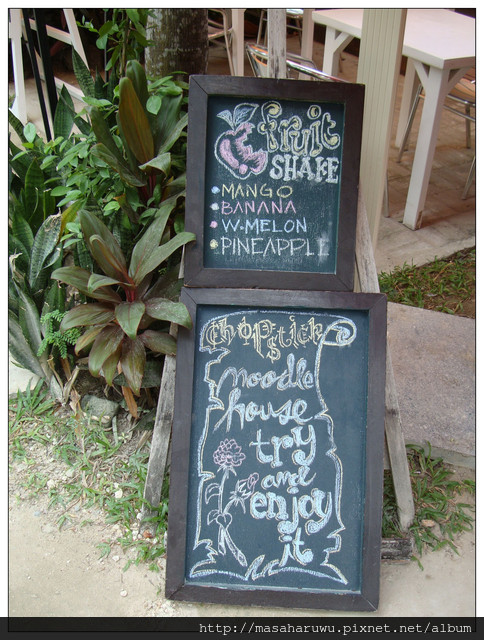 fruit
SHAKE
MANGO
BANANA
W.MELON
PINEAPPLE
chopsticks
noodle
house
try
and
enjoy
it
http://masaharuwu.pixnet.net/album